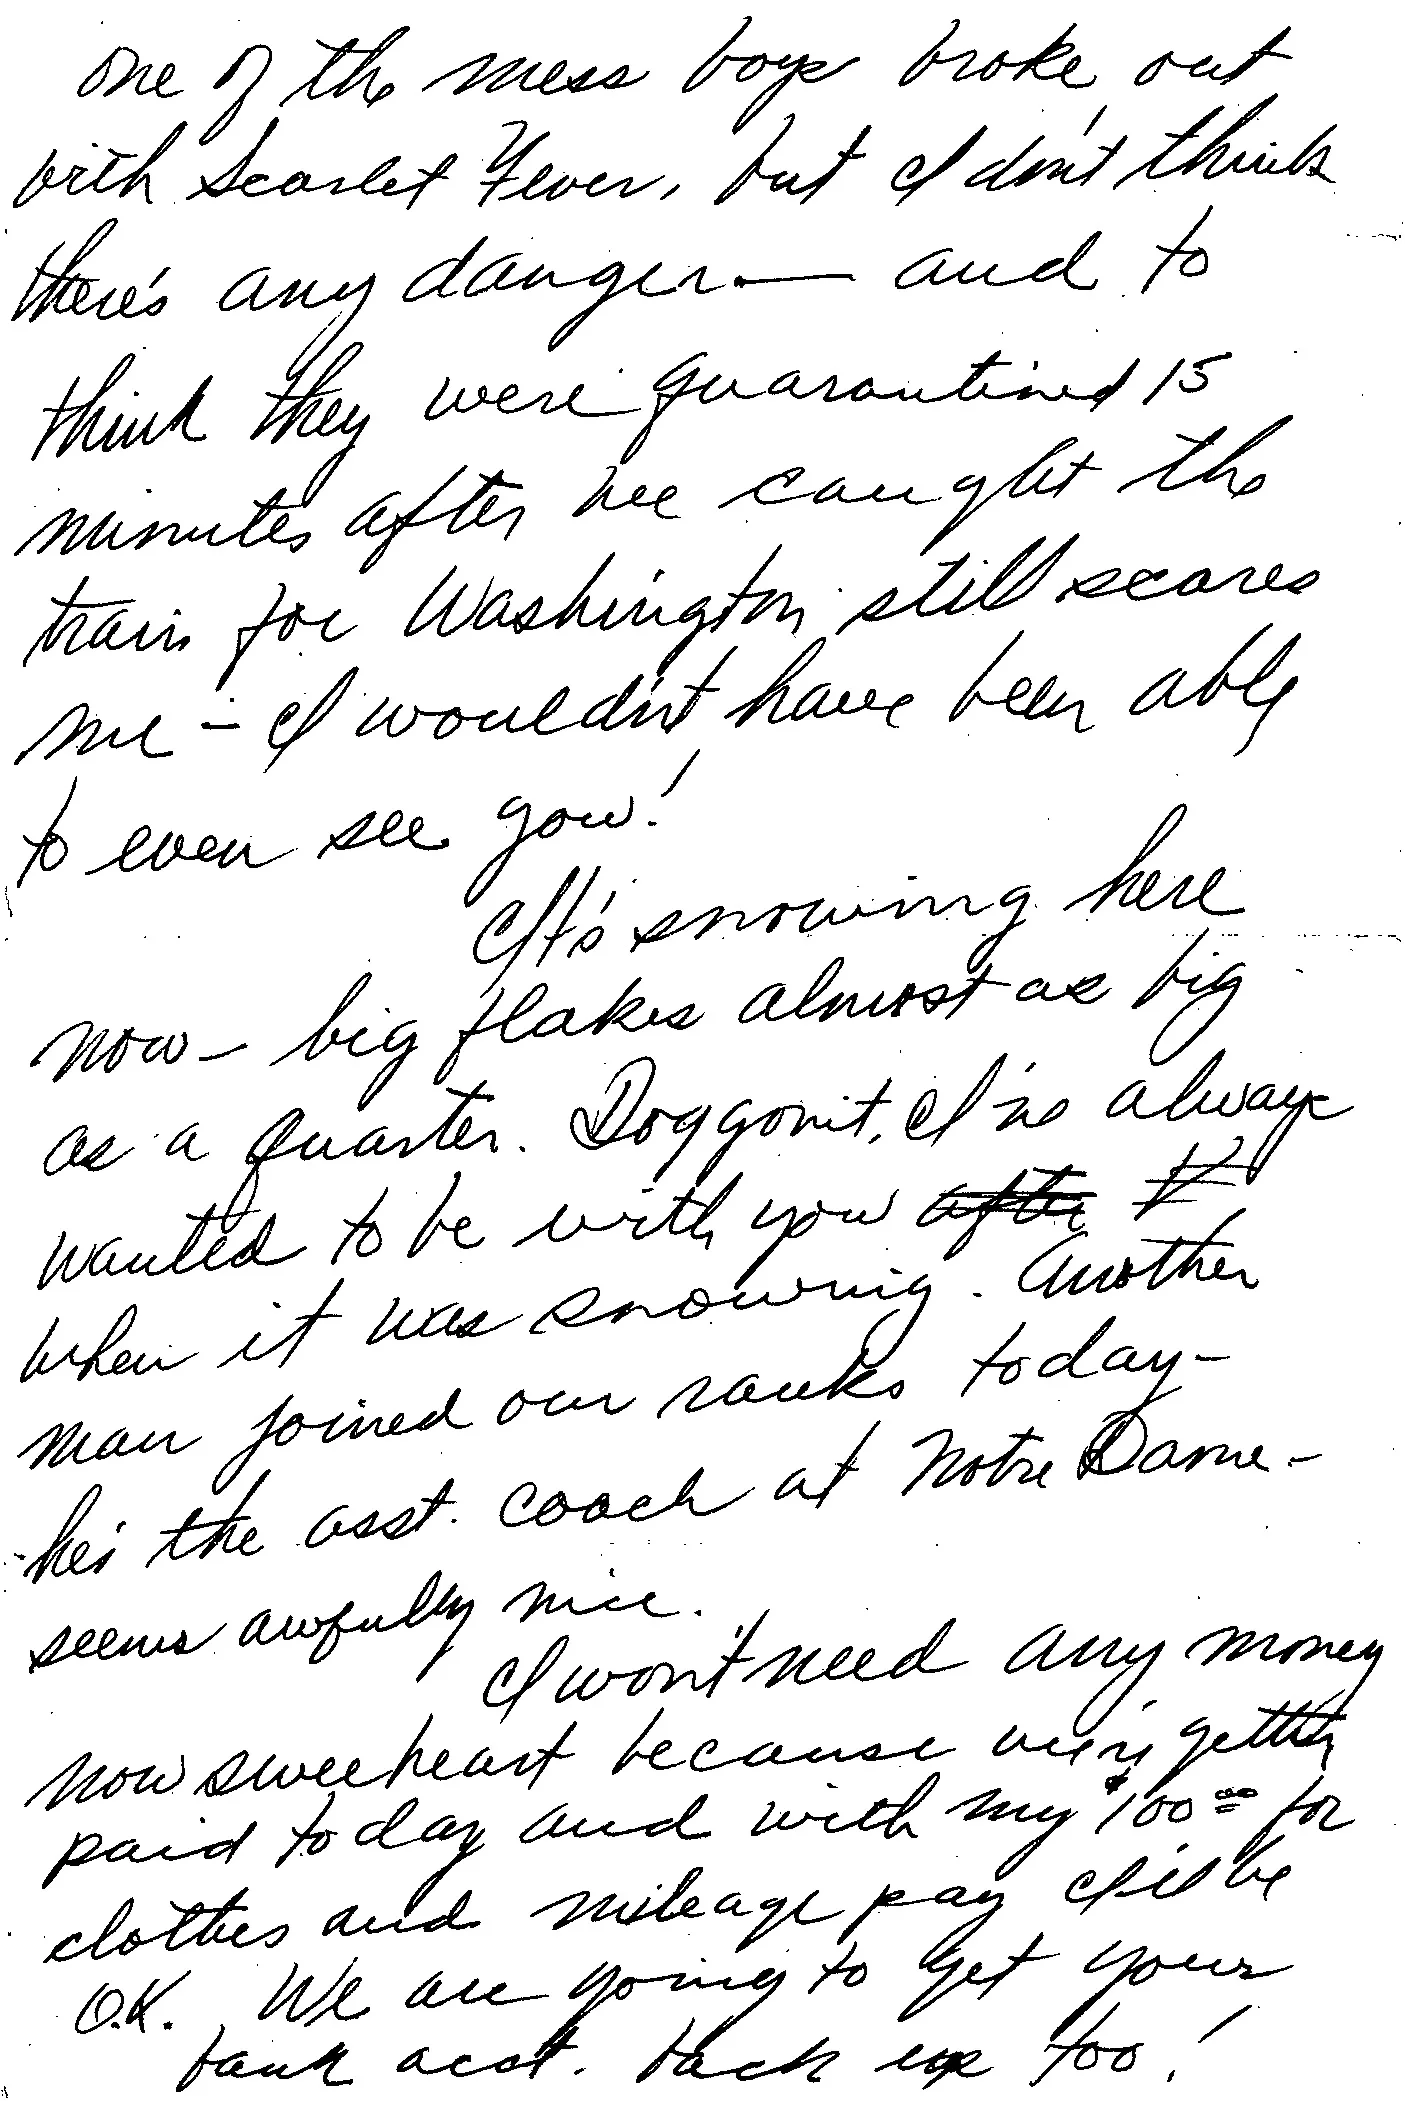 one of the mess boys broke out
with Scarlet Fever, but I don't think
there's any danger — and to
think they were quarantined 15
minutes after we caught the
train for Washington still scares
me - I wouldn't have been able
to even see you!
It's snowing here
now - big flakes almost as big
as a quarter. Doggonit, I've always
wanted to be with you after
when it was snowing. Another
man joined our ranks today -
he's the asst. coach at Notre Dame -
seems awfully nice.
I won't need any money
now sweeheart because we're gettin
paid today and with my $100.00 for
clothes and mileage pay I'll be
O.K. We are going to get your
bank acct. back up too!